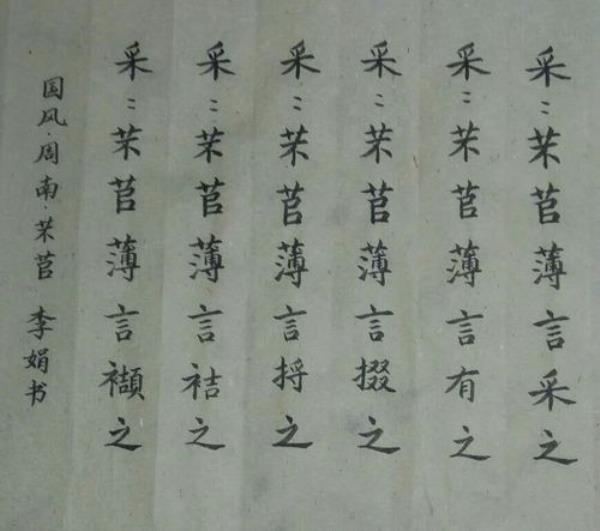 采〻芣苢薄言采之
采〻芣苢薄言有之
采〻芣苢薄言掇之
采〻芣苢薄言捋之
采〻芣苢薄言袺之
采〻芣苢薄言襭之
国风·周南·芣苢 李娟书